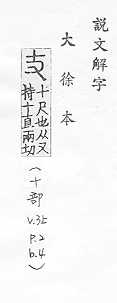 說文解字
大徐本
支
十尺也从又
持十直兩切
(十部
v.3上
p.2
b.4)